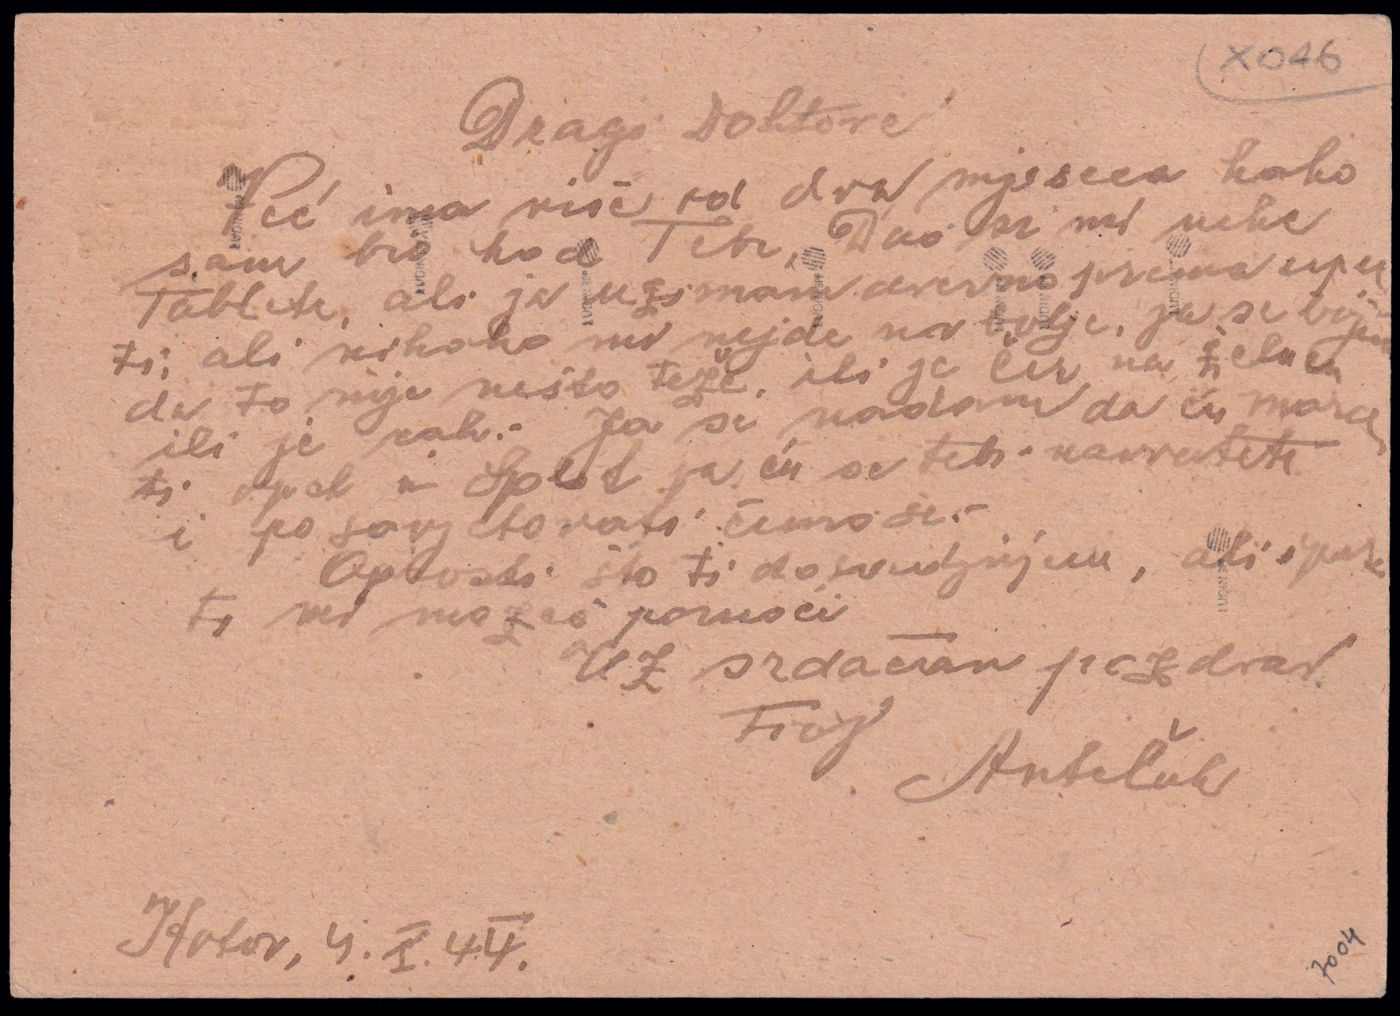 X046
Dragi Doktore
Već ima više od dva mjeseca kako
sam bio kod Tebe, Dao si mi neke
Tablete, ali ja uzimam dnevno prema upu
ti, ali nikako mi nejde na bolje, ja se bojim
da to nije nešto teže, ili je čir na želucu
ili je rak.- Ja se nadam da ću morati
ti opet u Split pa ću se tebi navratiti
i posavjetovati
Oprosti što ti dosadjujem, ali
ti mi možeš pomoći
Uz srdačan pozdrav
Tvoj
Kotor, 4. I. 44.
7004